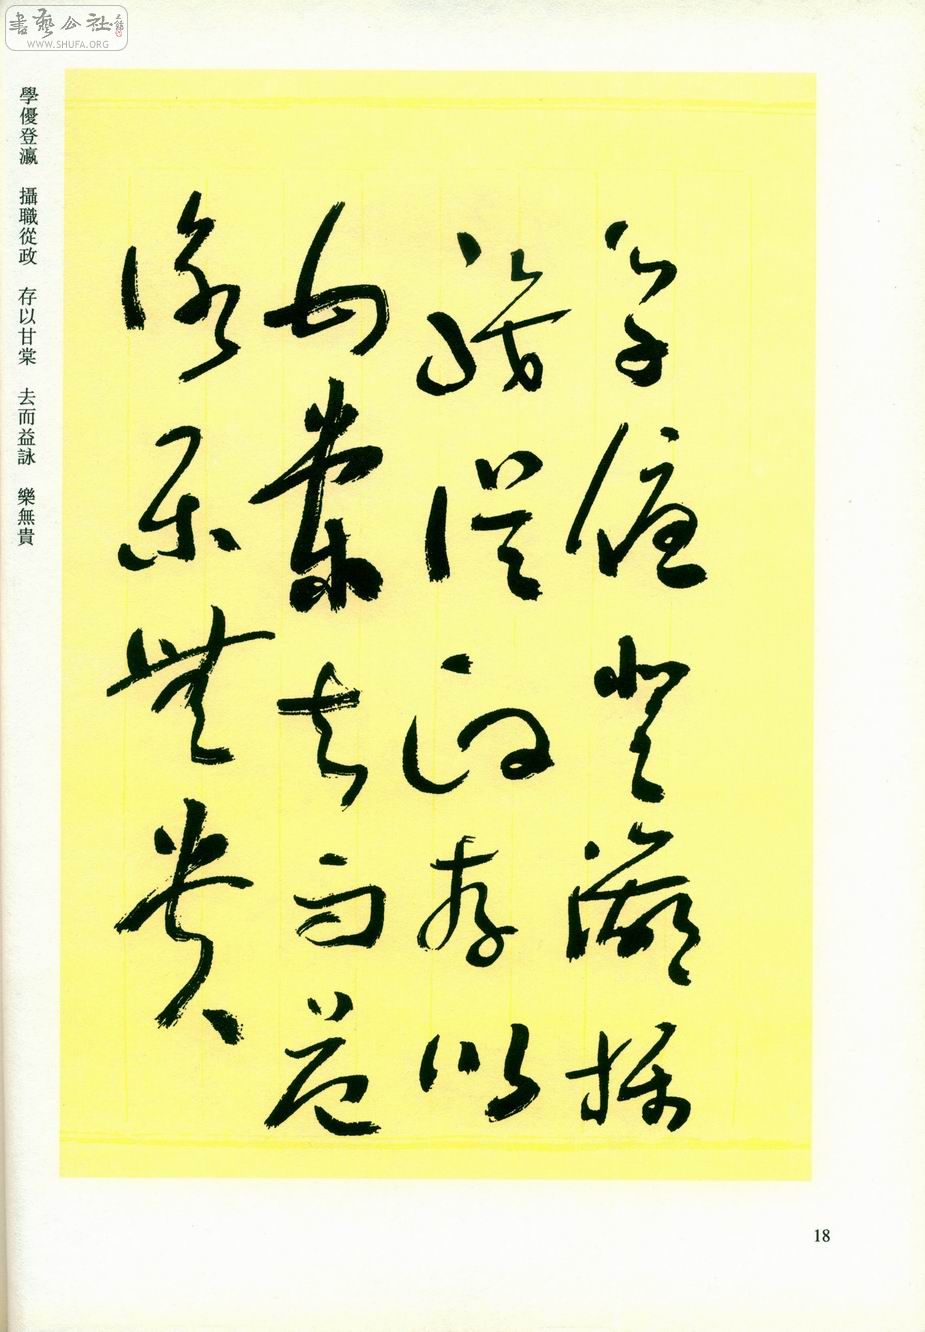 書藝公社
WWW.SHUFA.ORG
學優登瀛　攝職從政　存以甘棠　去而益詠　樂無貴
學優登瀛攝
職從政存以
甘棠去而益
詠樂無貴
18